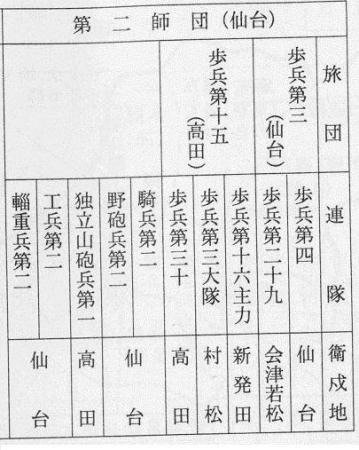 第二師団（仙台）
旅団
歩兵第三（仙台）
歩兵第十五（高田）
連隊
歩兵第四
歩兵第二十九
歩兵第十六主力
歩兵第三大隊
歩兵第三十
騎兵第二
野砲兵第二
独立山砲兵第一
工兵第二
輜重兵第二
衛戍地
仙台
会津若松
新発田
村松
高田
仙台
高田
仙台